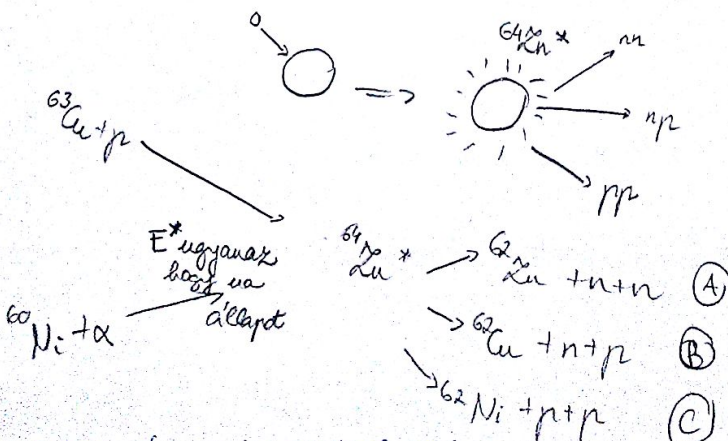 ⁶⁴Zn*
nn
np
pp
⁶³Cu+p
E* ugyanaz
hogy
állapot
⁶⁰Ni+α
⁶⁴Zn*
⁶²Zn +n+n Ⓐ
⁶²Cu +n+p Ⓑ
⁶²Ni +p+p Ⓒ